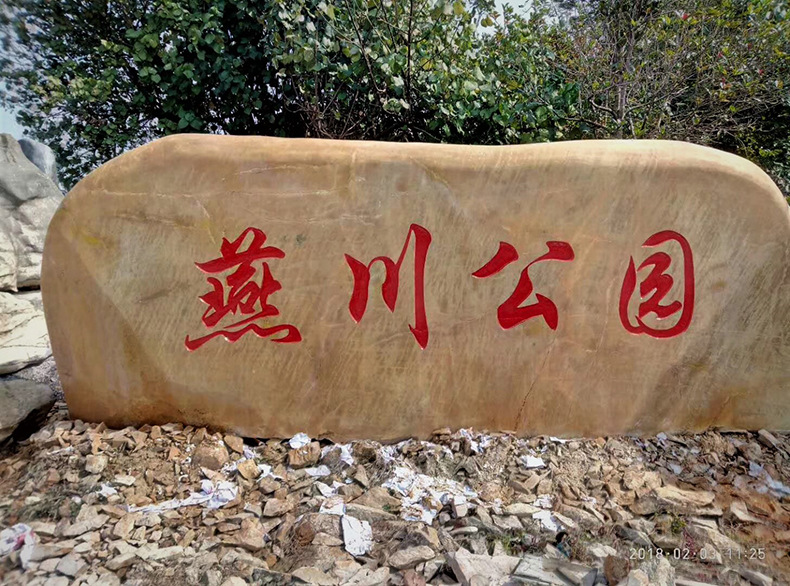 燕川公园
2018-02-03 11:25